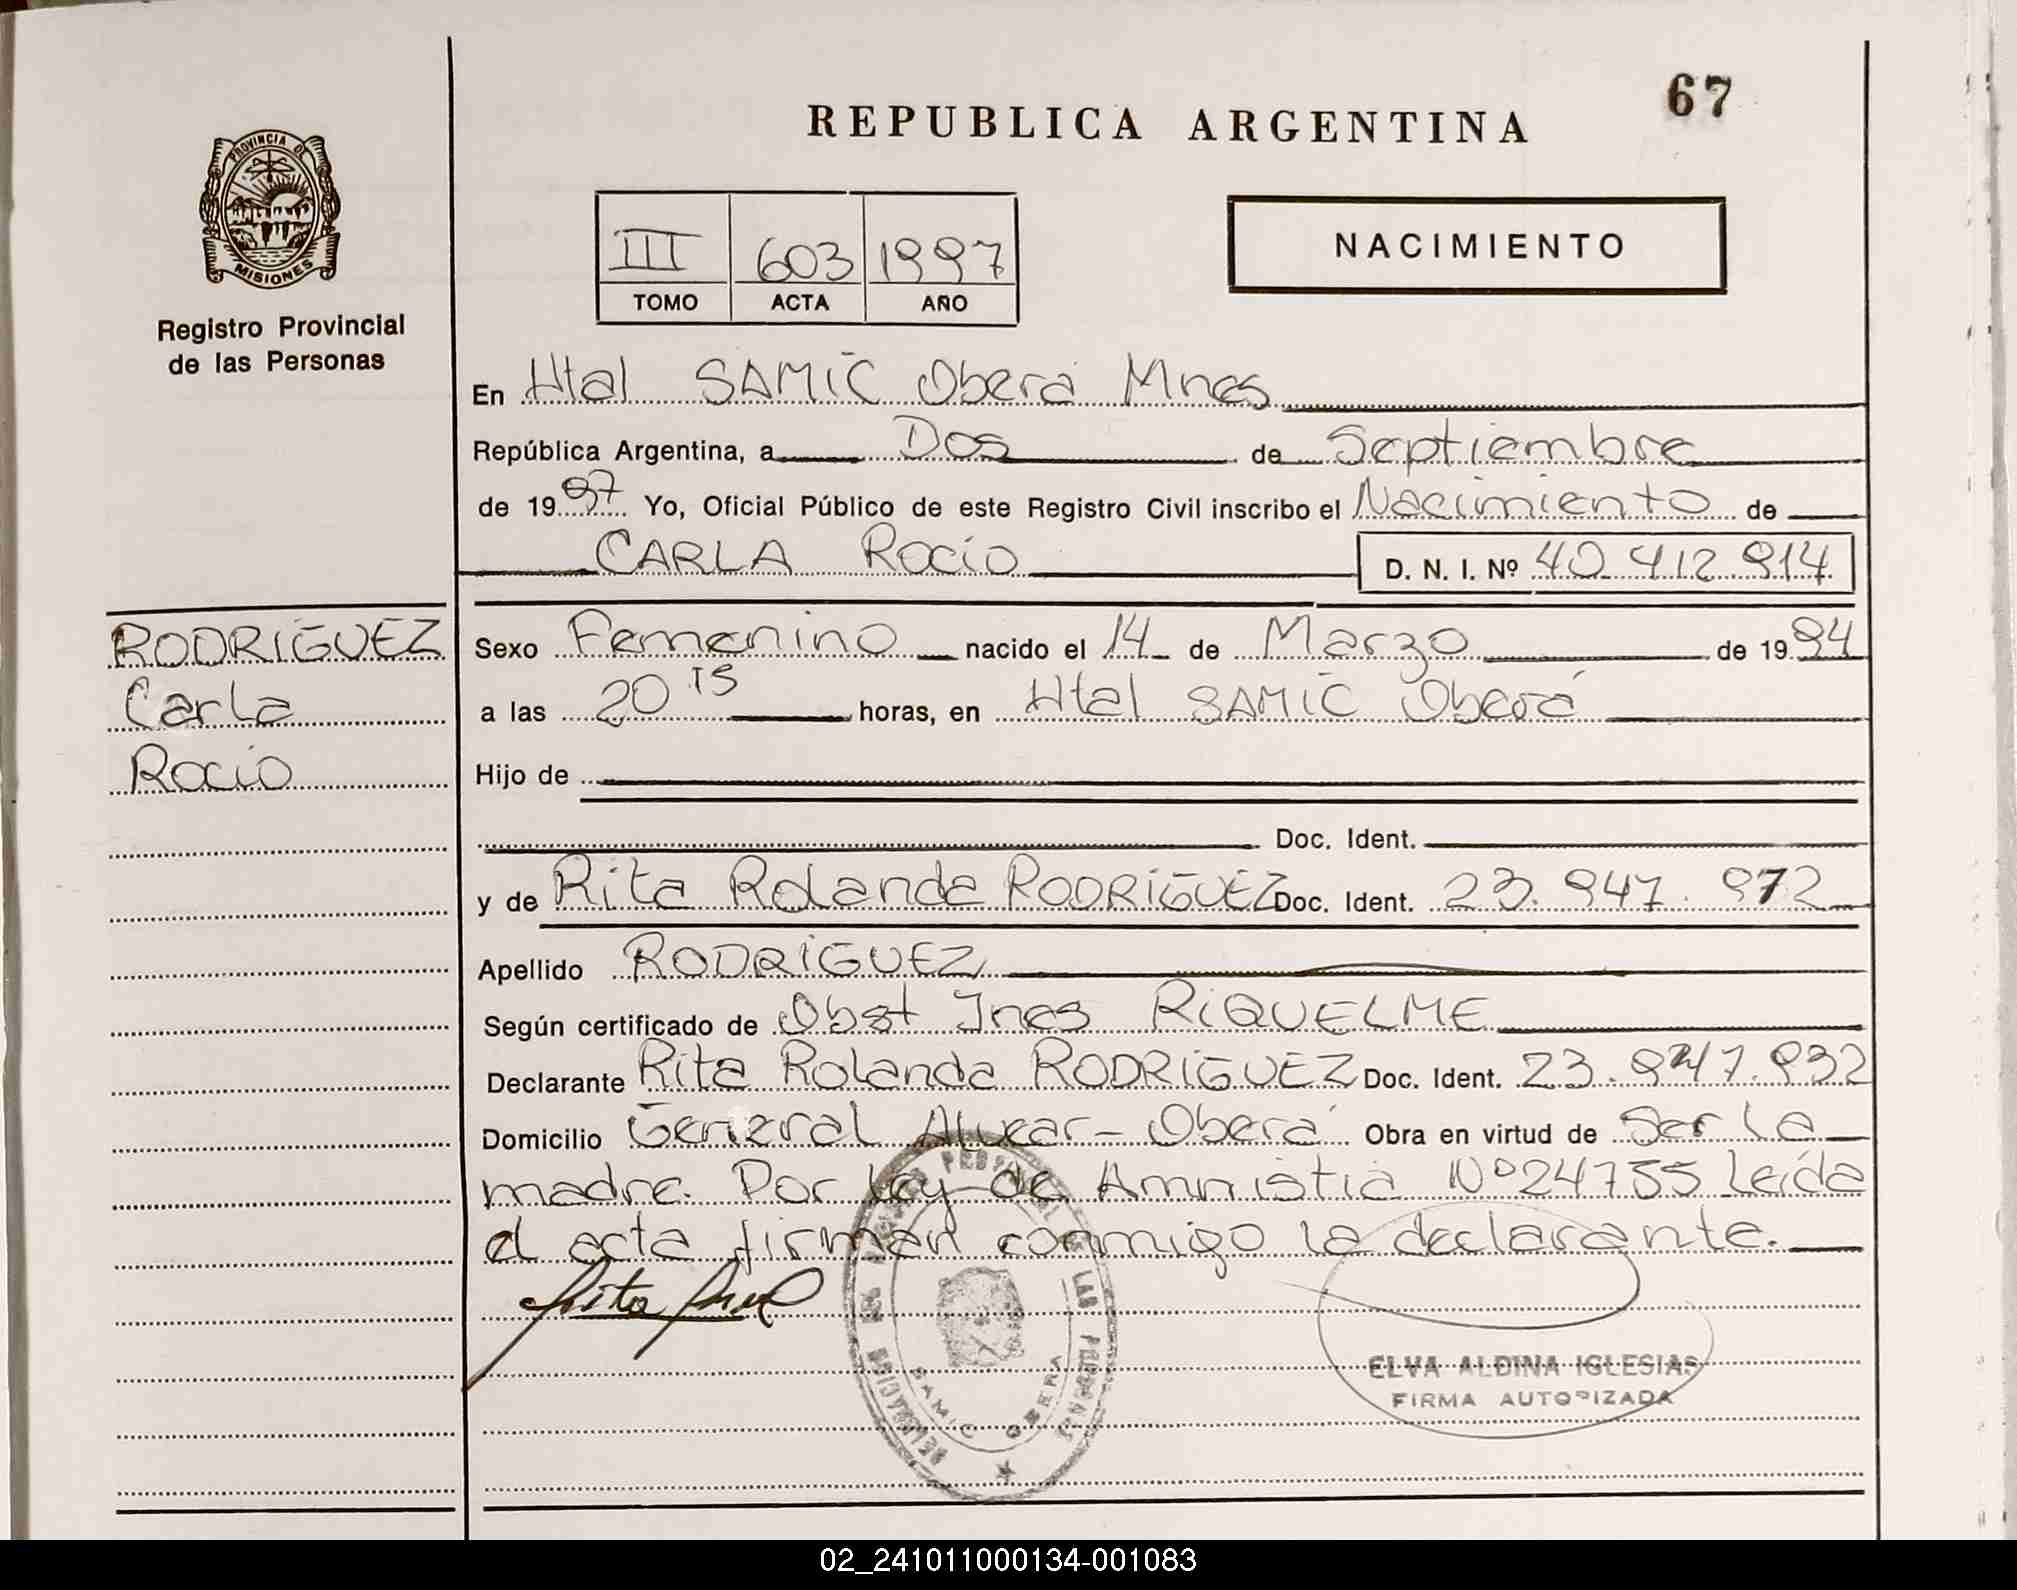 67
REPUBLICA ARGENTINA
PROVINCIA DE
MISIONES
Registro Provincial
de las Personas
III 603 1997
TOMO ACTA AÑO
NACIMIENTO
En Htal SAMIC Oberá Mnes
República Argentina, a Dos de Septiembre
de 1997 Yo, Oficial Público de este Registro Civil inscribo el Nacimiento de
CARLA Rocío D. N. I. Nº 40.412.914
RODRIGUEZ
Carla
Rocio
Sexo Femenino nacido el 14 de Marzo de 1994
a las 20 15 horas, en Htal SAMIC Oberá
Hijo de
Doc. Ident.
y de Rita Rolanda RODRIGUEZ Doc. Ident. 23.947.972
Apellido RODRIGUEZ
Según certificado de Obst Ines RIQUELME
Declarante Rita Rolanda RODRIGUEZ Doc. Ident. 23.947.932
Domicilio General Alvear - Oberá Obra en virtud de Ser la
madre. Por ley de Amnistia Nº 24755 Leída
el acta firman conmigo la declarante.
Rita
LAS PERSONAS
SAMIC OBERÁ
ELVA ALDINA IGLESIAS
FIRMA AUTORIZADA
02_241011000134-001083